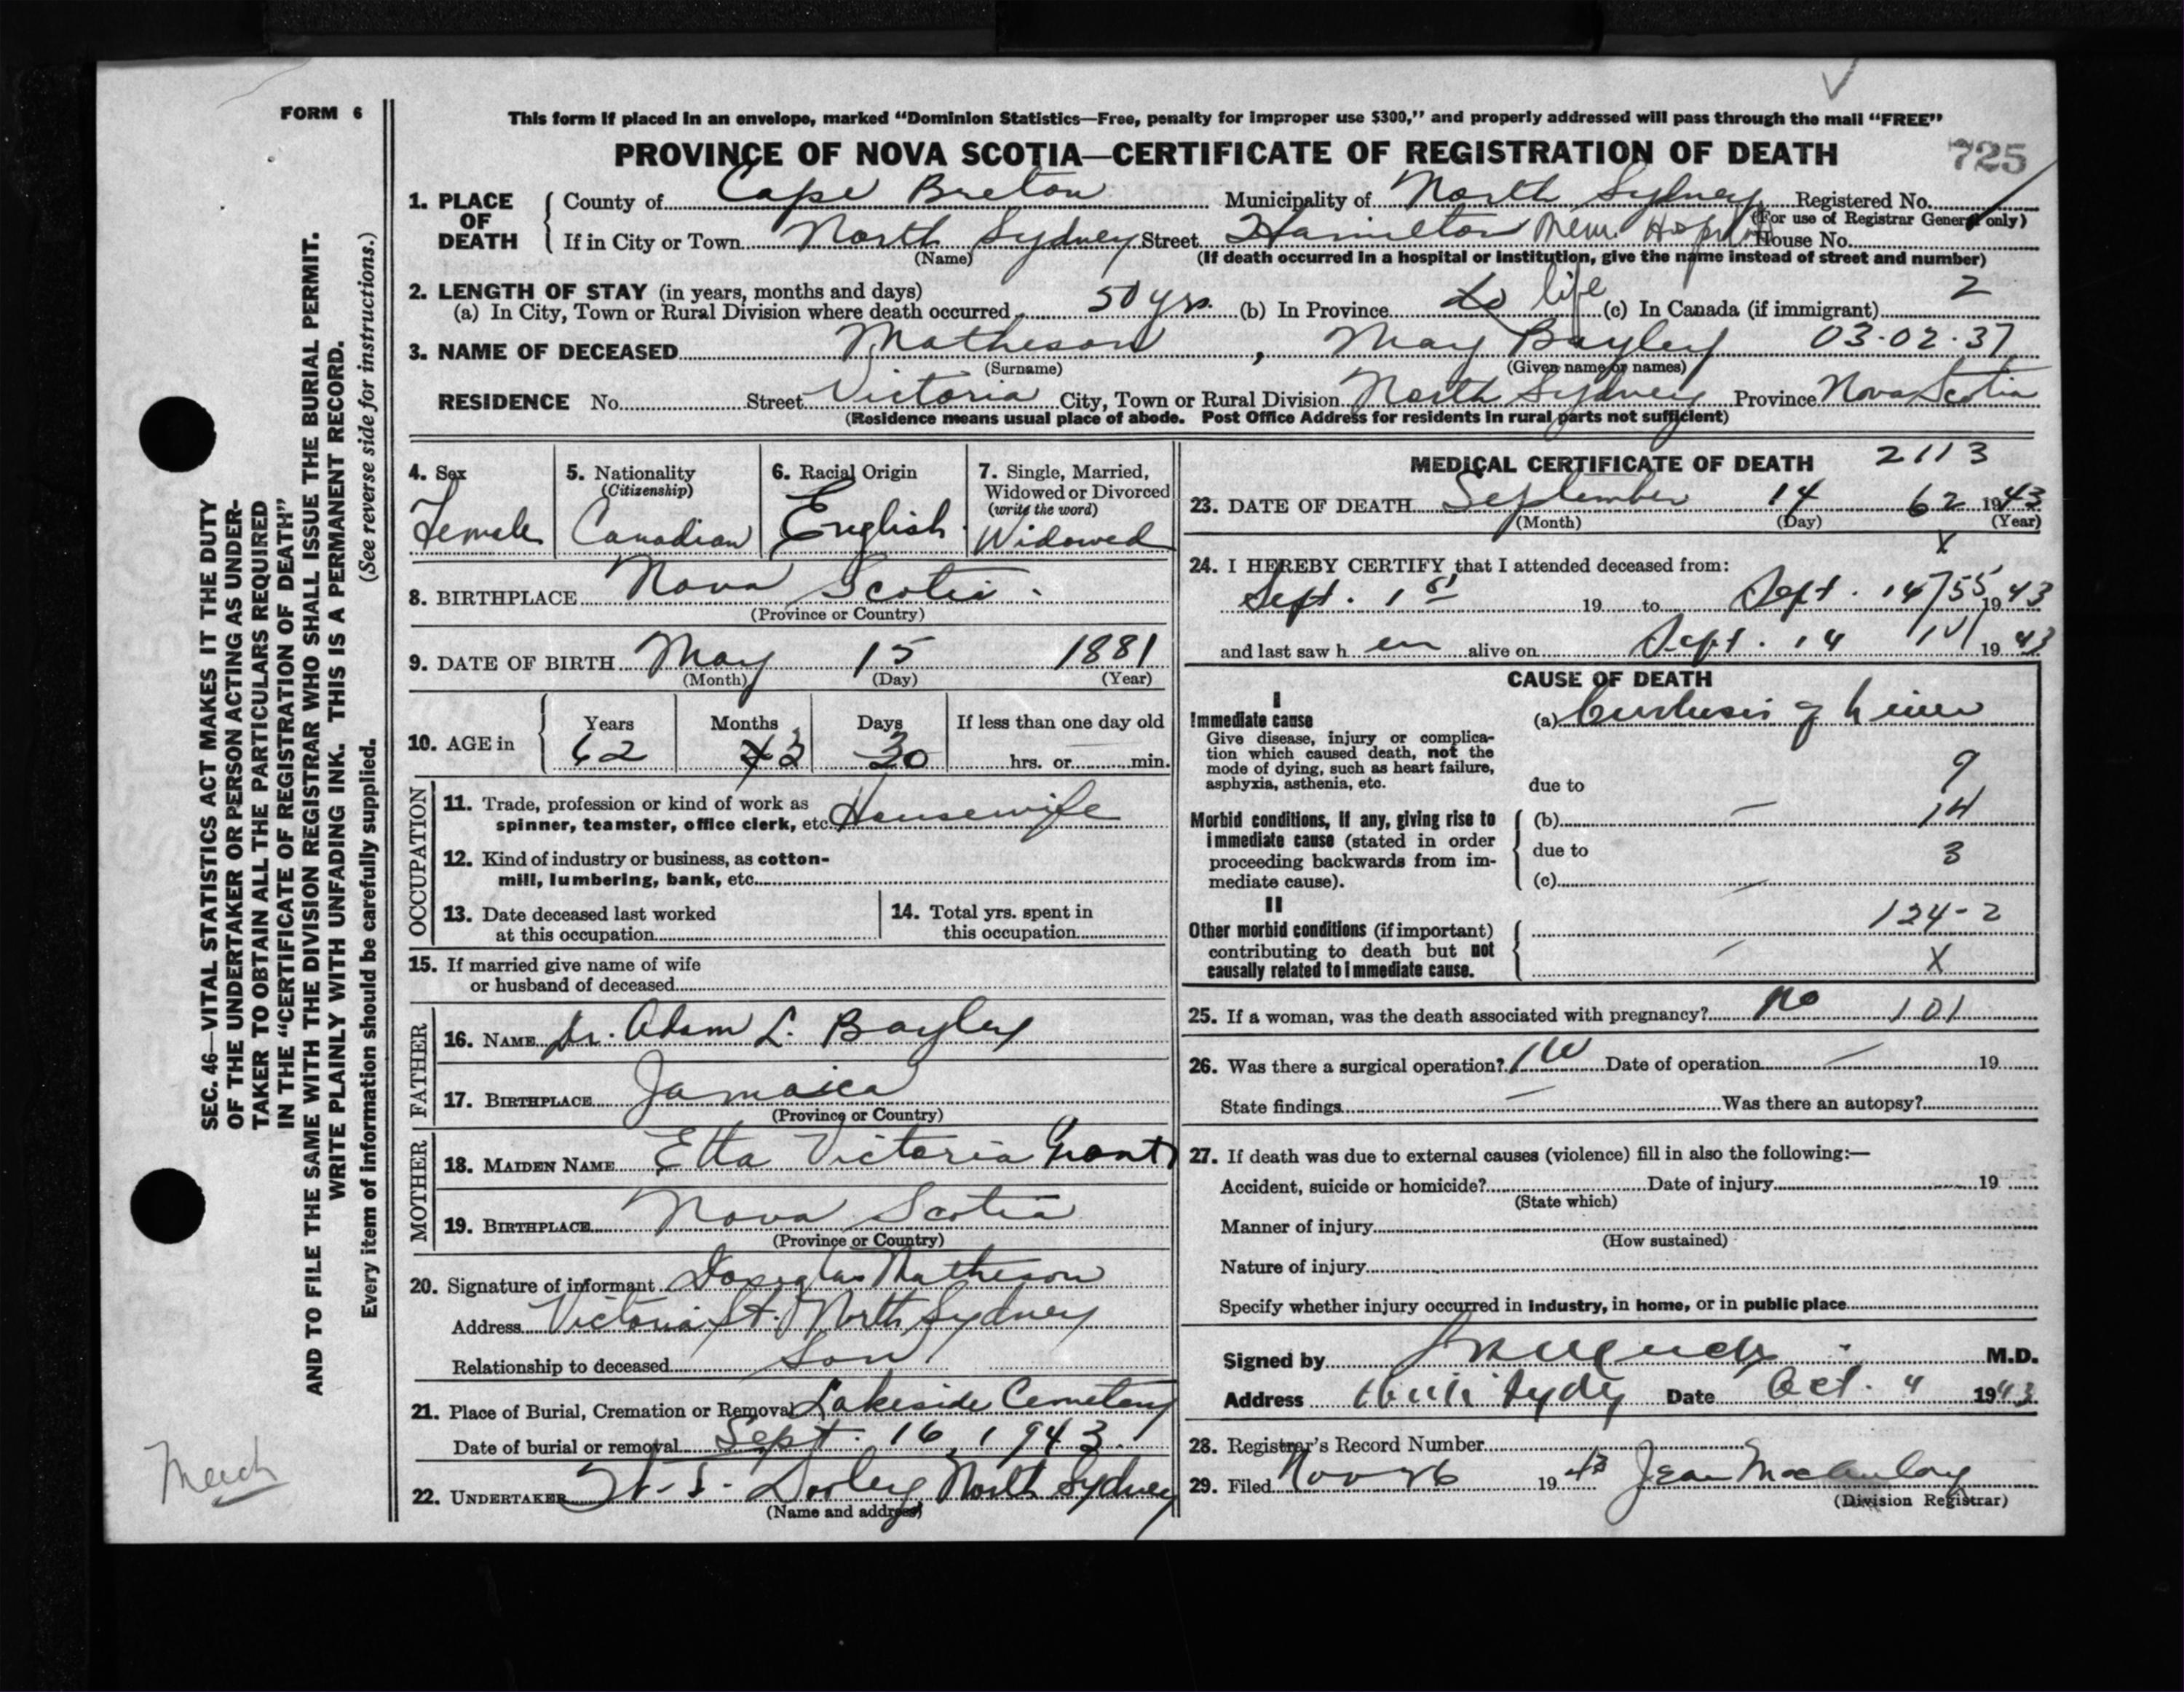 FORM 6
This form if placed in an envelope, marked “Dominion Statistics—Free, penalty for improper use $300,” and properly addressed will pass through the mail “FREE”
PROVINCE OF NOVA SCOTIA—CERTIFICATE OF REGISTRATION OF DEATH 725
1. PLACE OF DEATH County of Cape Breton Municipality of North Sydney Registered No.
(For use of Registrar General only)
If in City or Town North Sydney Street Hamilton Mem. Hospital House No.
(Name) (If death occurred in a hospital or institution, give the name instead of street and number)
2. LENGTH OF STAY (in years, months and days)
(a) In City, Town or Rural Division where death occurred 50 yrs. (b) In Province life (c) In Canada (if immigrant) 2
3. NAME OF DECEASED Matheson, May Bayley 03-02-37
(Surname) (Given name or names)
RESIDENCE No. Street Victoria City, Town or Rural Division North Sydney Province Nova Scotia
(Residence means usual place of abode. Post Office Address for residents in rural parts not sufficient)
4. Sex Female
5. Nationality (Citizenship) Canadian
6. Racial Origin English
7. Single, Married, Widowed or Divorced (write the word) Widowed
8. BIRTHPLACE Nova Scotia
(Province or Country)
9. DATE OF BIRTH May 15 1881
(Month) (Day) (Year)
10. AGE in Years 62 Months 3 Days 30 If less than one day old hrs. or min.
OCCUPATION
11. Trade, profession or kind of work as spinner, teamster, office clerk, etc. Housewife
12. Kind of industry or business, as cotton-mill, lumbering, bank, etc.
13. Date deceased last worked at this occupation
14. Total yrs. spent in this occupation
15. If married give name of wife or husband of deceased
FATHER
16. NAME Dr. Adam L. Bayley
17. BIRTHPLACE Jamaica
(Province or Country)
MOTHER
18. MAIDEN NAME Etta Victoria Grant
19. BIRTHPLACE Nova Scotia
(Province or Country)
20. Signature of informant Douglas Matheson
Address Victoria St. North Sydney
Relationship to deceased Son
21. Place of Burial, Cremation or Removal Lakeside Cemetery
Date of burial or removal Sept. 16, 1943.
22. UNDERTAKER Dooley North Sydney
(Name and address)
MEDICAL CERTIFICATE OF DEATH 2113
23. DATE OF DEATH September 14 62 1943
(Month) (Day) (Year)
X
24. I HEREBY CERTIFY that I attended deceased from:
Sept. 1st 19 to Sept. 14 1943
and last saw h er alive on Sept. 14 1943
CAUSE OF DEATH
I
Immediate cause
Give disease, injury or complication which caused death, not the mode of dying, such as heart failure, asphyxia, asthenia, etc.
(a) Cirrhosis of Liver
9
due to
Morbid conditions, if any, giving rise to immediate cause (stated in order proceeding backwards from immediate cause).
(b) — 14
due to 3
(c) —
II
Other morbid conditions (if important) contributing to death but not causally related to immediate cause.
124-2
— X
25. If a woman, was the death associated with pregnancy? No 101
26. Was there a surgical operation? Date of operation — 19
State findings — Was there an autopsy?
27. If death was due to external causes (violence) fill in also the following:—
Accident, suicide or homicide? Date of injury 19
(State which)
Manner of injury
(How sustained)
Nature of injury
Specify whether injury occurred in industry, in home, or in public place
Signed by M.D.
Address Sydney Date Oct. 4 1943
28. Registrar's Record Number
29. Filed Nov 26 1943 Jean MacAulay
(Division Registrar)
SEC. 46—VITAL STATISTICS ACT MAKES IT THE DUTY
OF THE UNDERTAKER OR PERSON ACTING AS UNDER-
TAKER TO OBTAIN ALL THE PARTICULARS REQUIRED
IN THE “CERTIFICATE OF REGISTRATION OF DEATH”
AND TO FILE THE SAME WITH THE DIVISION REGISTRAR WHO SHALL ISSUE THE BURIAL PERMIT.
WRITE PLAINLY WITH UNFADING INK. THIS IS A PERMANENT RECORD.
Every item of information should be carefully supplied. (See reverse side for instructions.)